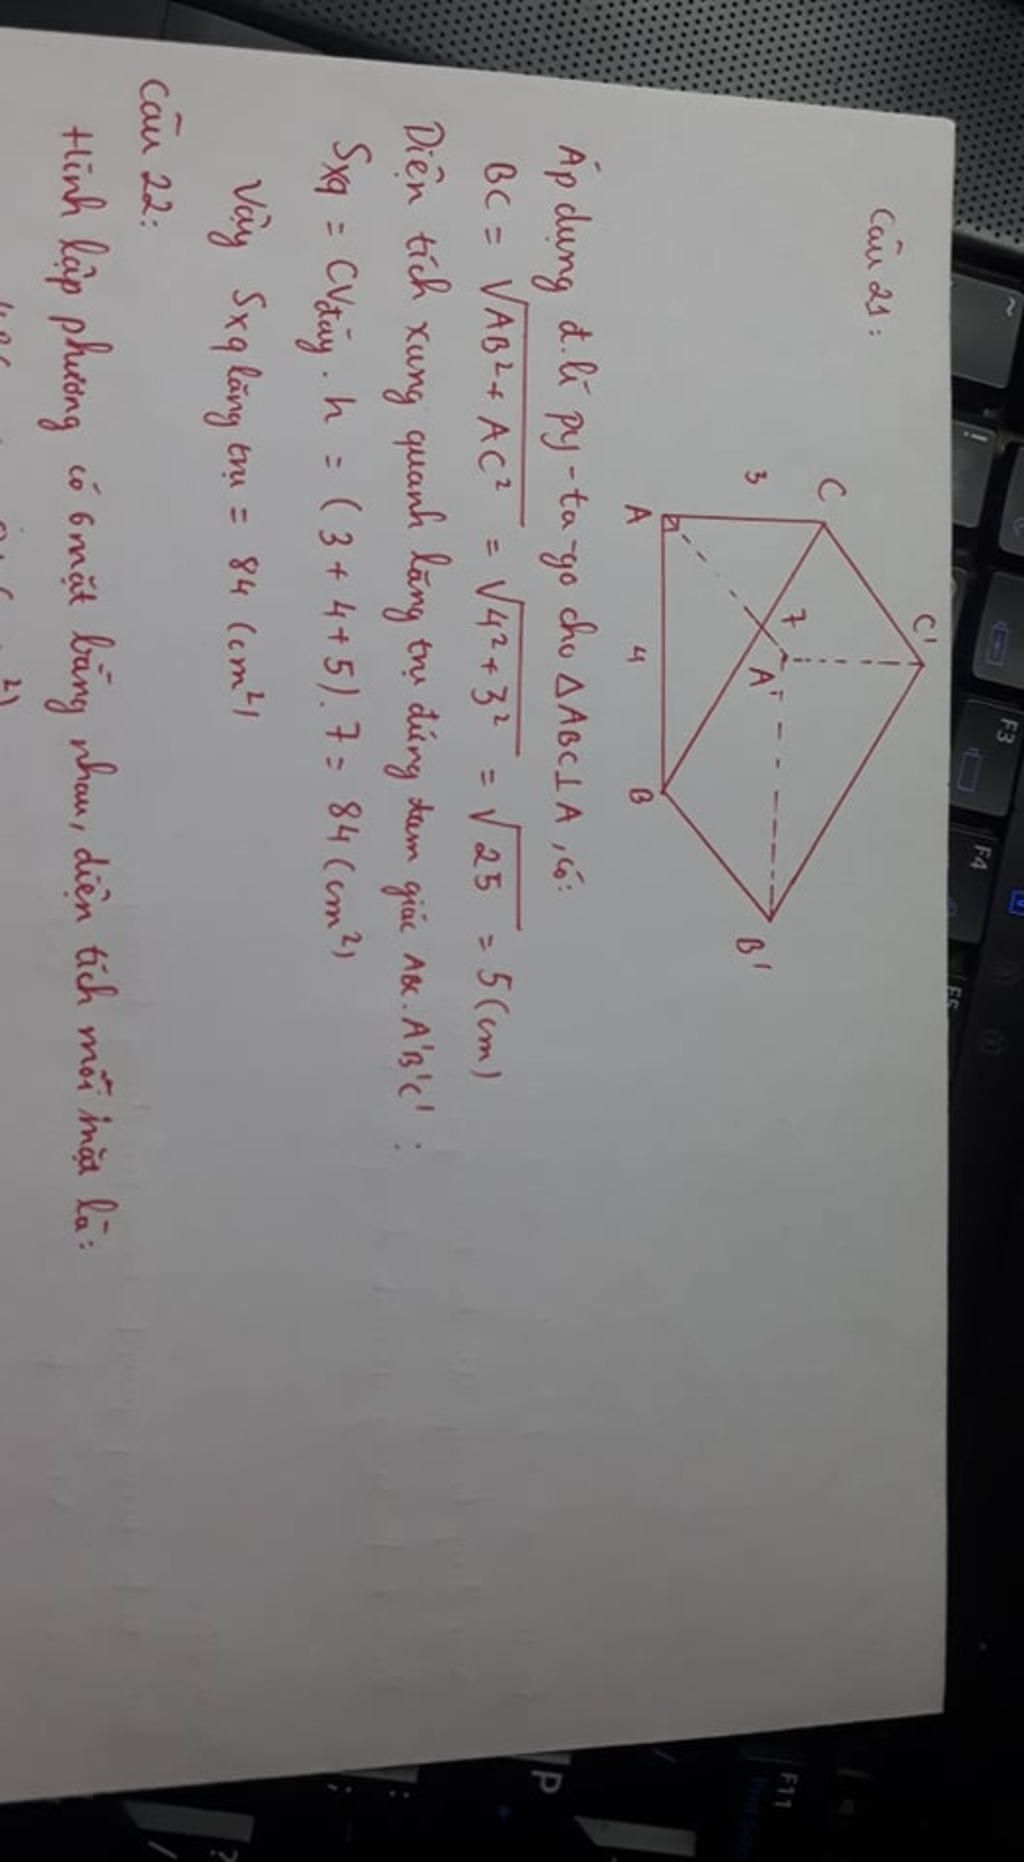 Câu 21:
C
C'
3
7
A'
A
4
B
B'
Áp dụng đ.lí py-ta-go cho △ABC⊥A, có:
BC = √AB² + AC² = √4² + 3² = √25 = 5 (cm)
Diện tích xung quanh lăng trụ đứng tam giác ABC.A'B'C' :
Sxq = CVđáy . h = (3 + 4 + 5). 7 = 84 (cm²)
Vậy Sxq lăng trụ = 84 (cm²)
Câu 22:
Hình lập phương có 6 mặt bằng nhau, diện tích mỗi mặt là:
~
!
F3
F4
F5
F11
P
:
;
?
/